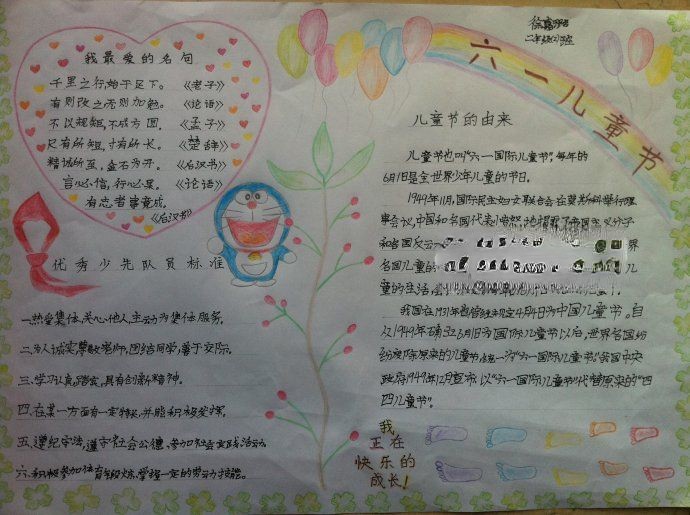 我最爱的名句
千里之行,始于足下。 《老子》
有则改之无则加勉。 《论语》
不以规矩,不成方圆。 《孟子》
尺有所短,寸有所长。 《楚辞》
精诚所至,金石为开。 《后汉书》
言必信,行必果。 《论语》
有志者事竟成。
《后汉书》
优秀少先队员标准
一、热爱集体、关心他人、主动为集体服务。
二、为人诚实,尊敬老师,团结同学,善于交际。
三、学习认真,踏实,具有创新精神。
四、在某一方面有一定特长,并能积极发挥。
五、遵纪守法,遵守社会公德,参加社会实践活动
六、积极参加体育锻炼,掌握一定的劳动技能。
二年级(2)班
六一儿童节
儿童节的由来
儿童节也叫“六一国际儿童节”,每年的
6月1日是全世界少年儿童的节日。
1949年11月,国际民主妇女联合会在莫斯科举行理
事会议,中国和各国代表
和各国反 界
各国儿童的 儿
童的生活
我国在1931年曾 规定4月4日为中国儿童节。自
从1949年 6月1日为国际儿童节以后,世界各国纷
纷废除原来的儿童节 统一为“六一国际儿童节”我国中央
政府1949年12月宣布以“六一国际儿童节”代替原来的“四
四儿童节”。
我
正在
快乐的
成长!